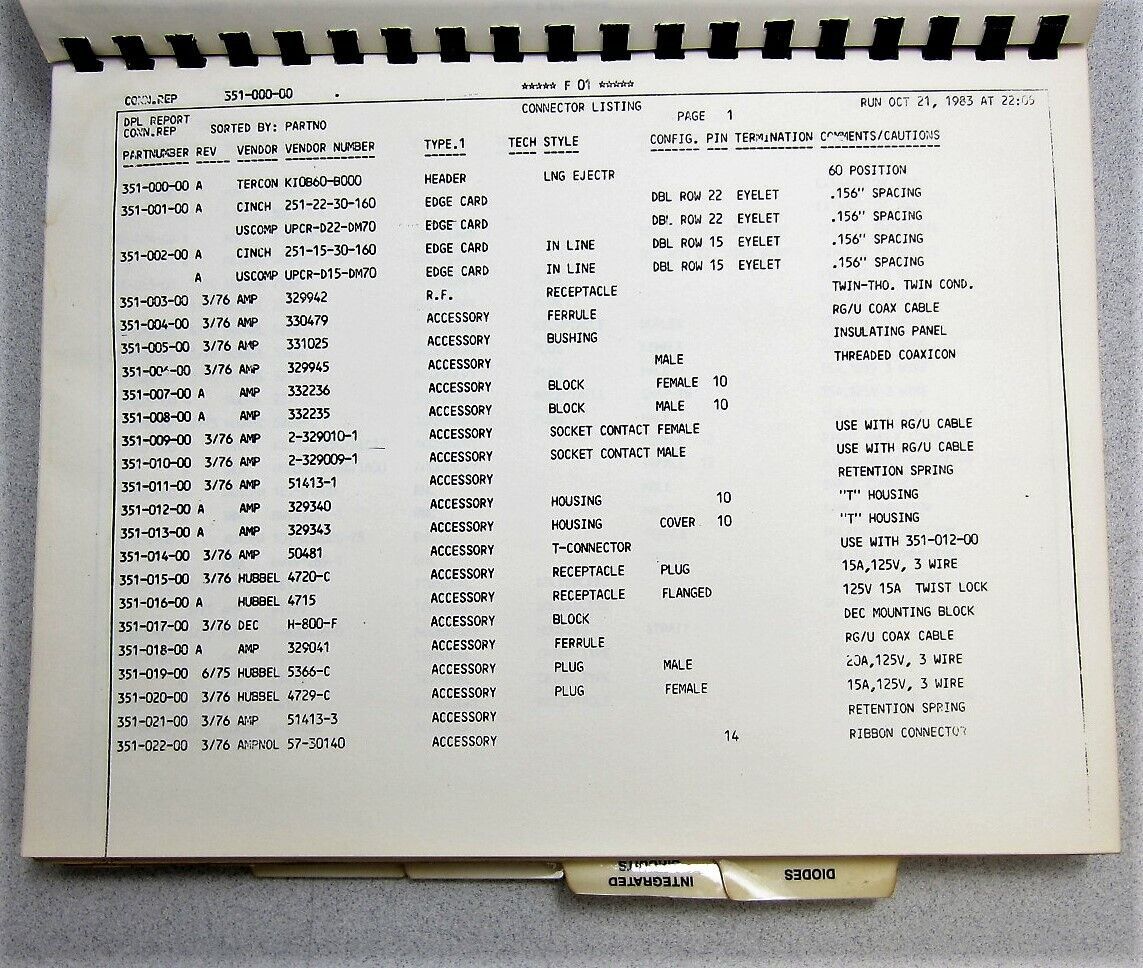 ***** F 01 *****
CONN.REP 351-000-00 .
CONNECTOR LISTING RUN OCT 21, 1983 AT 22:05
DPL REPORT PAGE 1
CONN.REP SORTED BY: PARTNO
PARTNUMBER REV VENDOR VENDOR NUMBER TYPE.1 TECH STYLE CONFIG. PIN TERMINATION COMMENTS/CAUTIONS
351-000-00 A TERCON KI0B60-B000 HEADER LNG EJECTR 60 POSITION
351-001-00 A CINCH 251-22-30-160 EDGE CARD DBL ROW 22 EYELET .156" SPACING
USCOMP UPCR-D22-DM70 EDGE CARD DBL ROW 22 EYELET .156" SPACING
351-002-00 A CINCH 251-15-30-160 EDGE CARD IN LINE DBL ROW 15 EYELET .156" SPACING
A USCOMP UPCR-D15-DM70 EDGE CARD IN LINE DBL ROW 15 EYELET .156" SPACING
351-003-00 3/76 AMP 329942 R.F. RECEPTACLE TWIN-THO. TWIN COND.
351-004-00 3/76 AMP 330479 ACCESSORY FERRULE RG/U COAX CABLE
351-005-00 3/76 AMP 331025 ACCESSORY BUSHING INSULATING PANEL
351-006-00 3/76 AMP 329945 ACCESSORY MALE THREADED COAXICON
351-007-00 A AMP 332236 ACCESSORY BLOCK FEMALE 10
351-008-00 A AMP 332235 ACCESSORY BLOCK MALE 10
351-009-00 3/76 AMP 2-329010-1 ACCESSORY SOCKET CONTACT FEMALE USE WITH RG/U CABLE
351-010-00 3/76 AMP 2-329009-1 ACCESSORY SOCKET CONTACT MALE USE WITH RG/U CABLE
351-011-00 3/76 AMP 51413-1 ACCESSORY RETENTION SPRING
351-012-00 A AMP 329340 ACCESSORY HOUSING 10 "T" HOUSING
351-013-00 A AMP 329343 ACCESSORY HOUSING COVER 10 "T" HOUSING
351-014-00 3/76 AMP 50481 ACCESSORY T-CONNECTOR USE WITH 351-012-00
351-015-00 3/76 HUBBEL 4720-C ACCESSORY RECEPTACLE PLUG 15A,125V, 3 WIRE
351-016-00 A HUBBEL 4715 ACCESSORY RECEPTACLE FLANGED 125V 15A TWIST LOCK
351-017-00 3/76 DEC H-800-F ACCESSORY BLOCK DEC MOUNTING BLOCK
351-018-00 A AMP 329041 ACCESSORY FERRULE RG/U COAX CABLE
351-019-00 6/75 HUBBEL 5366-C ACCESSORY PLUG MALE 20A,125V, 3 WIRE
351-020-00 3/76 HUBBEL 4729-C ACCESSORY PLUG FEMALE 15A,125V, 3 WIRE
351-021-00 3/76 AMP 51413-3 ACCESSORY RETENTION SPRING
351-022-00 3/76 AMPNOL 57-30140 ACCESSORY 14 RIBBON CONNECTOR
INTEGRATED
CIRCUITS
DIODES